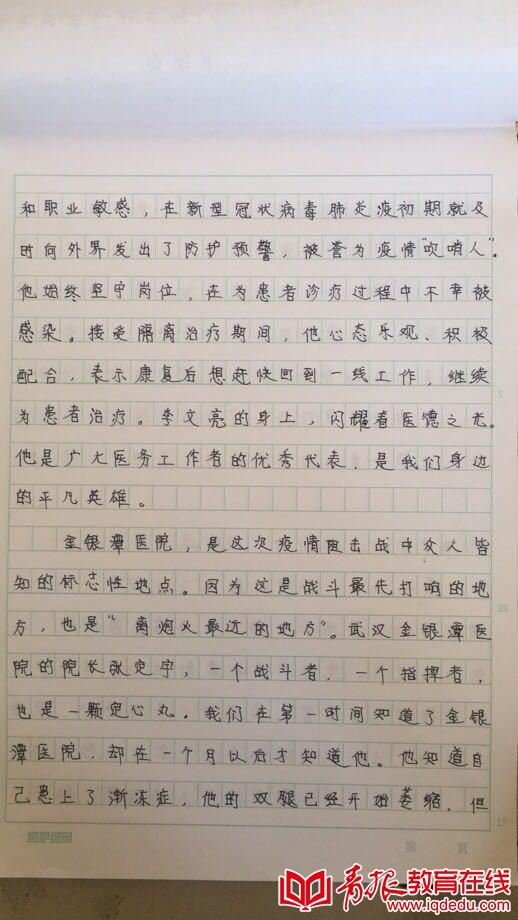 和职业敏感，在新型冠状病毒肺炎疫初期就及
时向外界发出了防护预警，被誉为疫情“吹哨人”。
他始终坚守岗位，在为患者诊疗过程中不幸被
感染。接受隔离治疗期间，他心态乐观、积极
配合，表示康复后想赶快回到一线工作，继续
为患者治疗。李文亮的身上，闪耀着医德之光。
他是广大医务工作者的优秀代表，是我们身边
的平凡英雄。
金银潭医院，是这次疫情阻击战中众人皆
知的标志性地点。因为这是战斗最先打响的地
方，也是“离炮火最近的地方”。武汉金银潭医
院的院长张定宇，一个战斗者，一个指挥者，
也是一颗定心丸。我们在第一时间知道了金银
潭医院，却在一个月以后才知道他。他知道自
己患上了渐冻症，他的双腿已经开始萎缩，但
5
10
15
第 页
青报教育在线
www.iqdedu.com